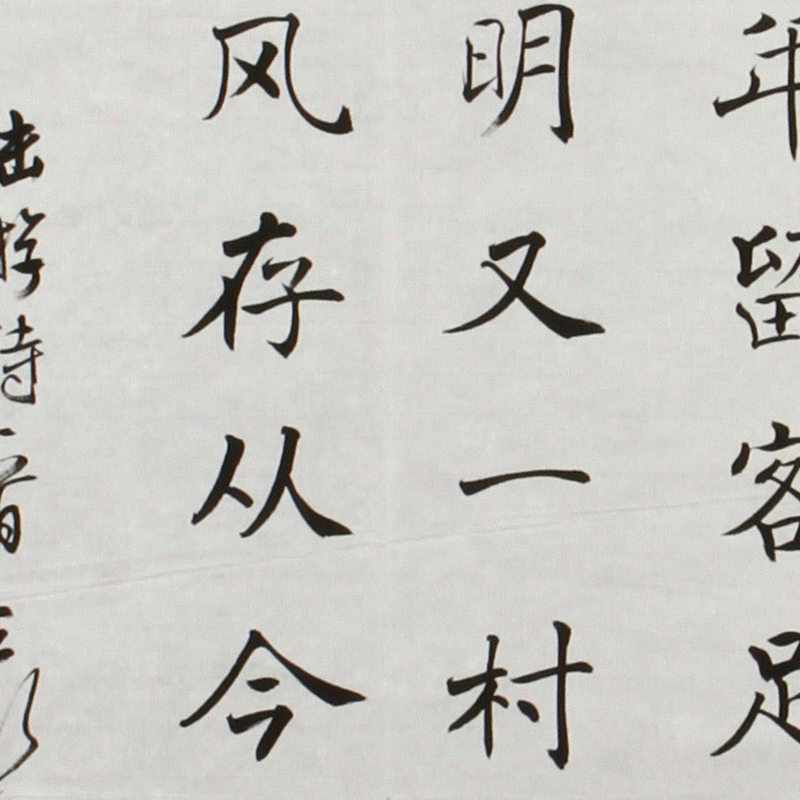 年留客足
明又一村
风存从今
陆游诗一首